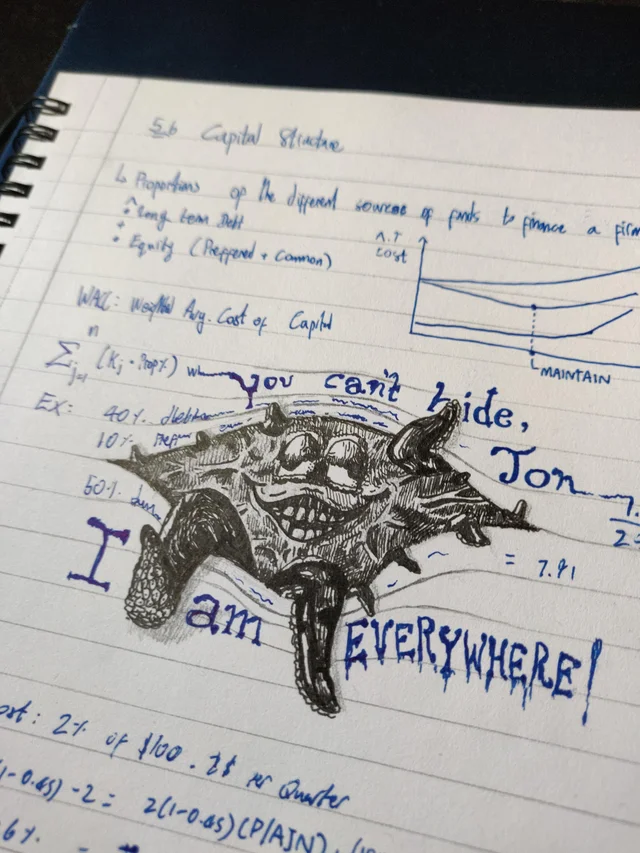 5.6 Capital Structure
↳ Proportions of the different sources of funds to finance a firm
• Long term Debt
+
• Equity (Preffered + Common)
A.T
Cost
MAINTAIN
WACC: Weighted Avg. Cost of Capital
n
Σ (Kj · Prop%)
j=1
you can't hide,
Ex: 40%
10%
Jon
50%
= 7.91
I
am
EVERYWHERE!
2% of $100. 2$ per Quarter
-2 = 2(1-0.45)(P/A,i,N)
6%